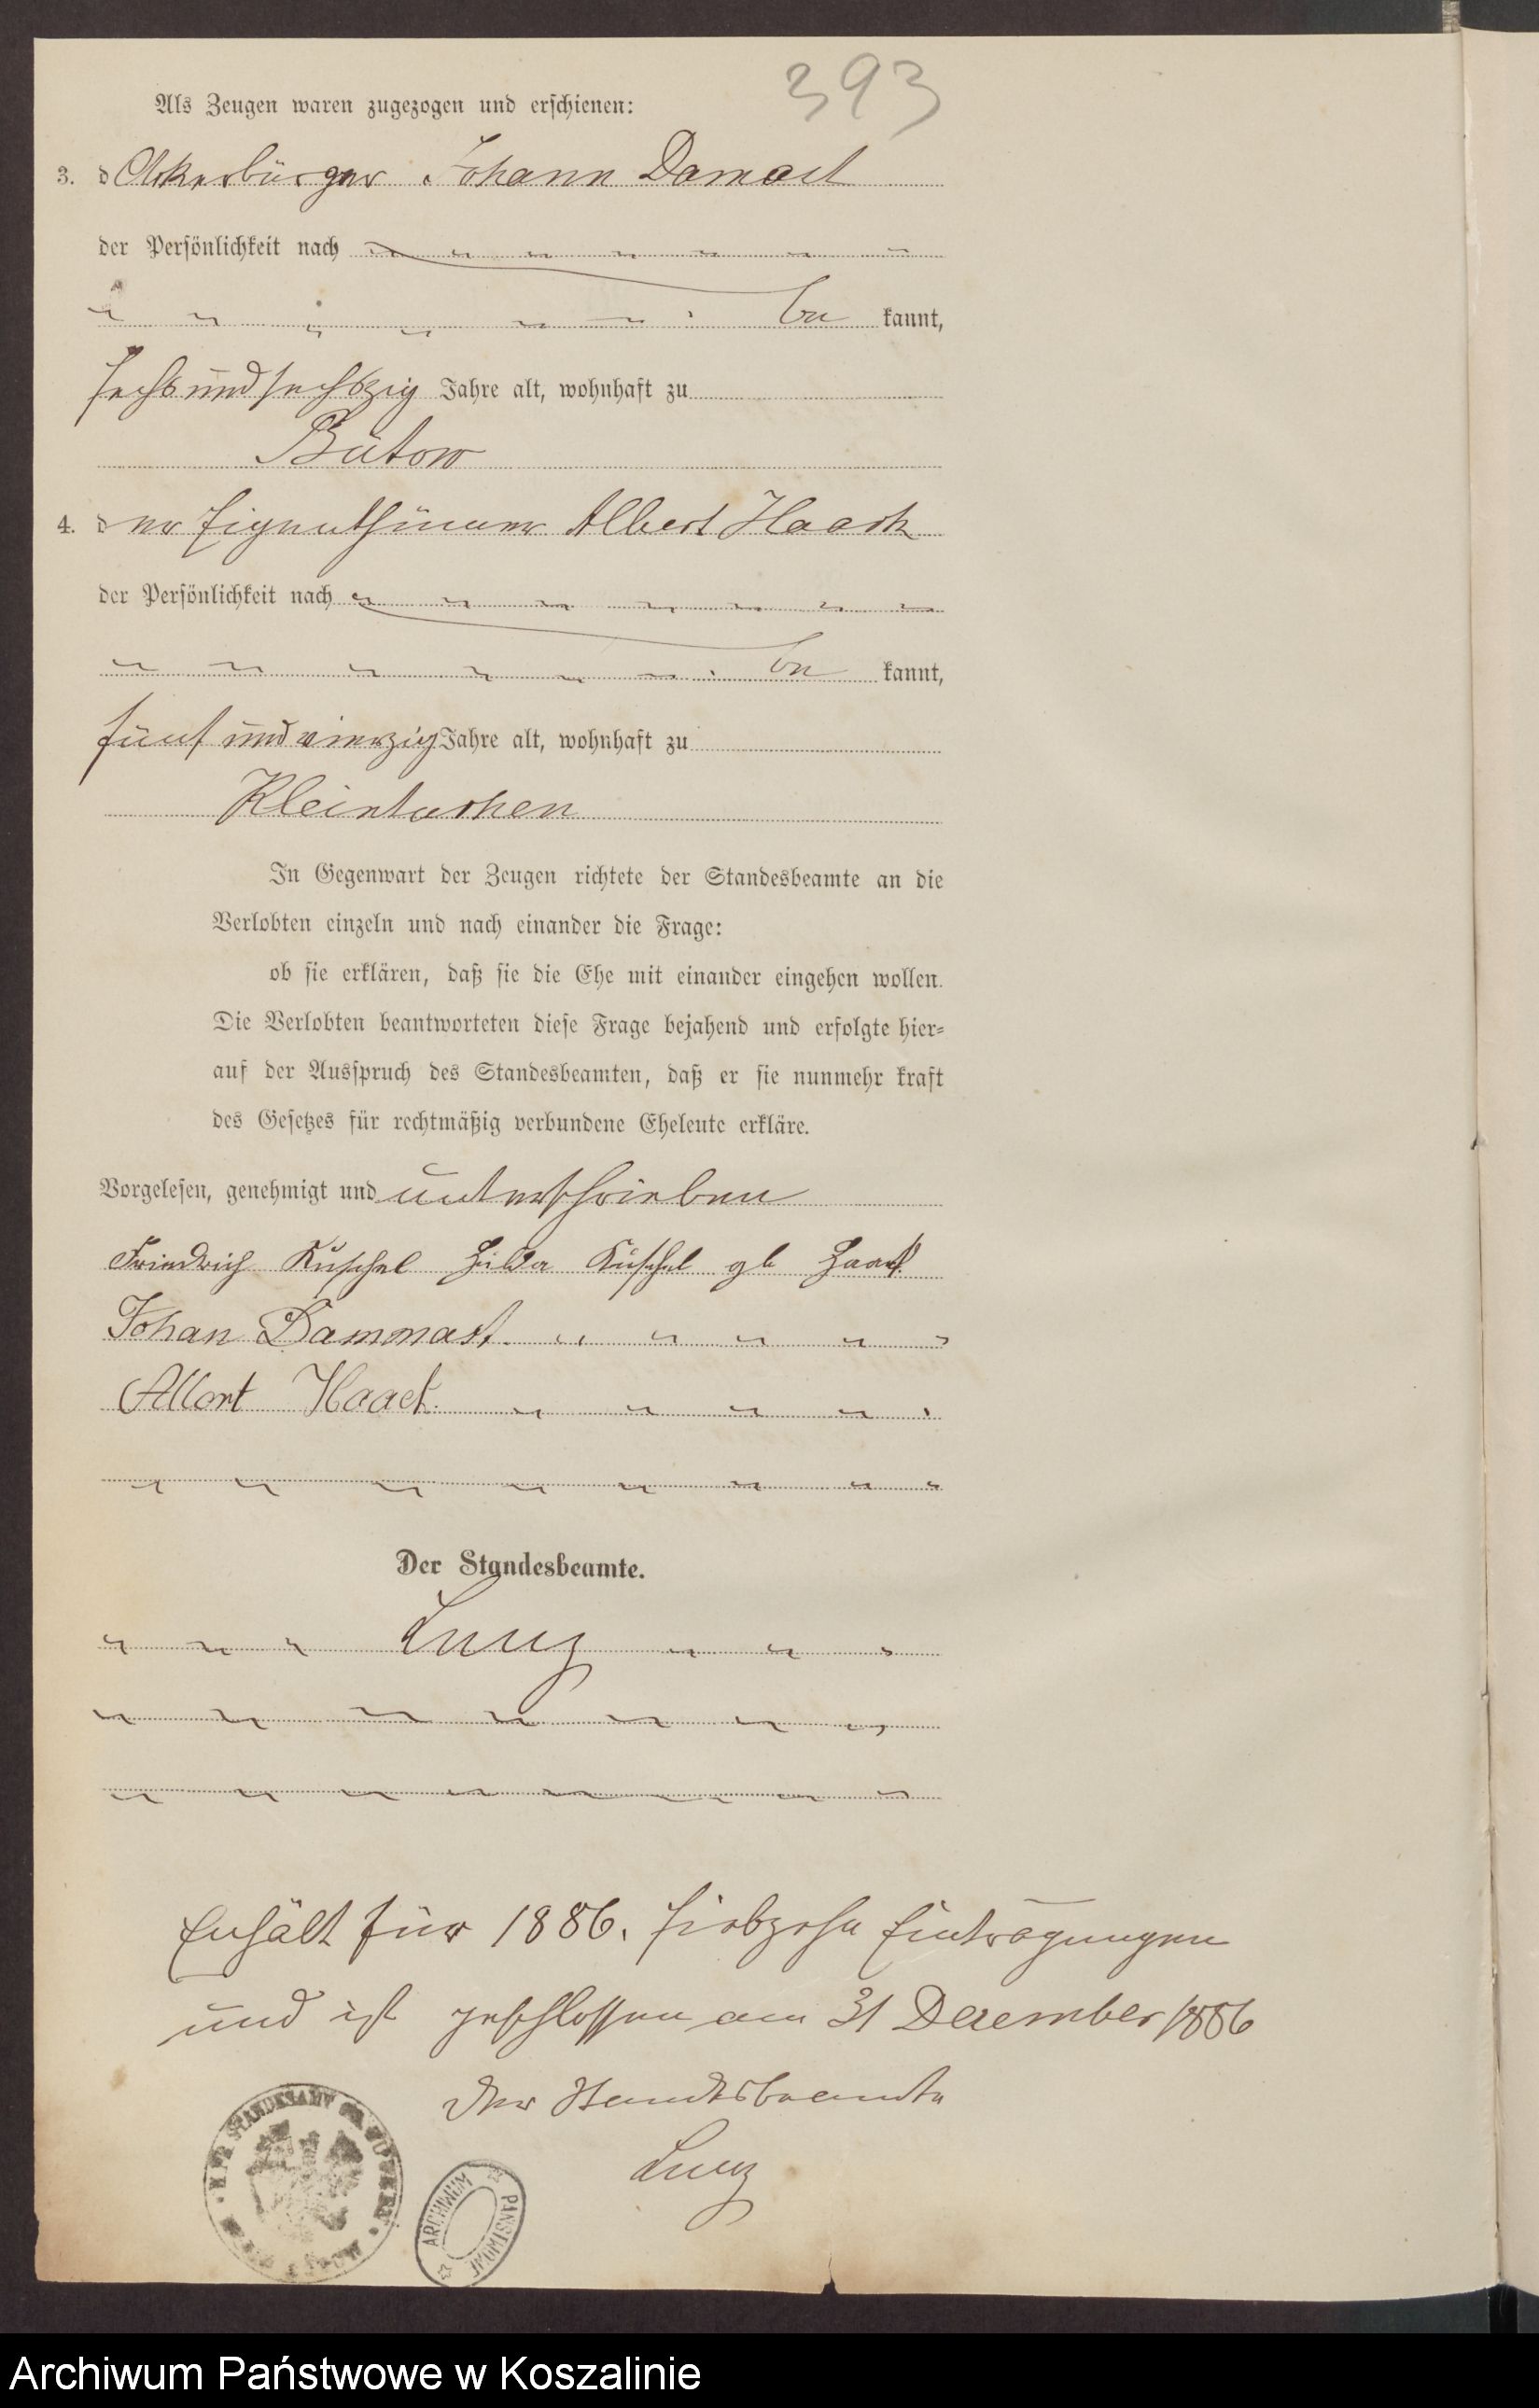 393
Als Zeugen waren zugezogen und erschienen:
3. d Ackerbürger Johann Damast
der Persönlichkeit nach
be kannt,
sechs und sechszig Jahre alt, wohnhaft zu
Bütow
4. der Eigenthümer Albert Haack
der Persönlichkeit nach
be kannt,
fünf und vierzig Jahre alt, wohnhaft zu
Kleintuchen
In Gegenwart der Zeugen richtete der Standesbeamte an die
Verlobten einzeln und nach einander die Frage:
ob sie erklären, daß sie die Ehe mit einander eingehen wollen.
Die Verlobten beantworteten diese Frage bejahend und erfolgte hier-
auf der Ausspruch des Standesbeamten, daß er sie nunmehr kraft
des Gesetzes für rechtmäßig verbundene Eheleute erkläre.
Vorgelesen, genehmigt und unterschrieben
Friedrich Kuschel Hulda Kuschel gb Haack
Johan Dammast
Albert Haack
Der Standesbeamte.
Lenz
Enhält für 1886. siebzehn Eintragungen
und ist geschlossen am 31 Dezember 1886
Der Standesbeamte
Lenz
STANDESAMT
ARCHIWUM PAŃSTWOWE
Archiwum Państwowe w Koszalinie